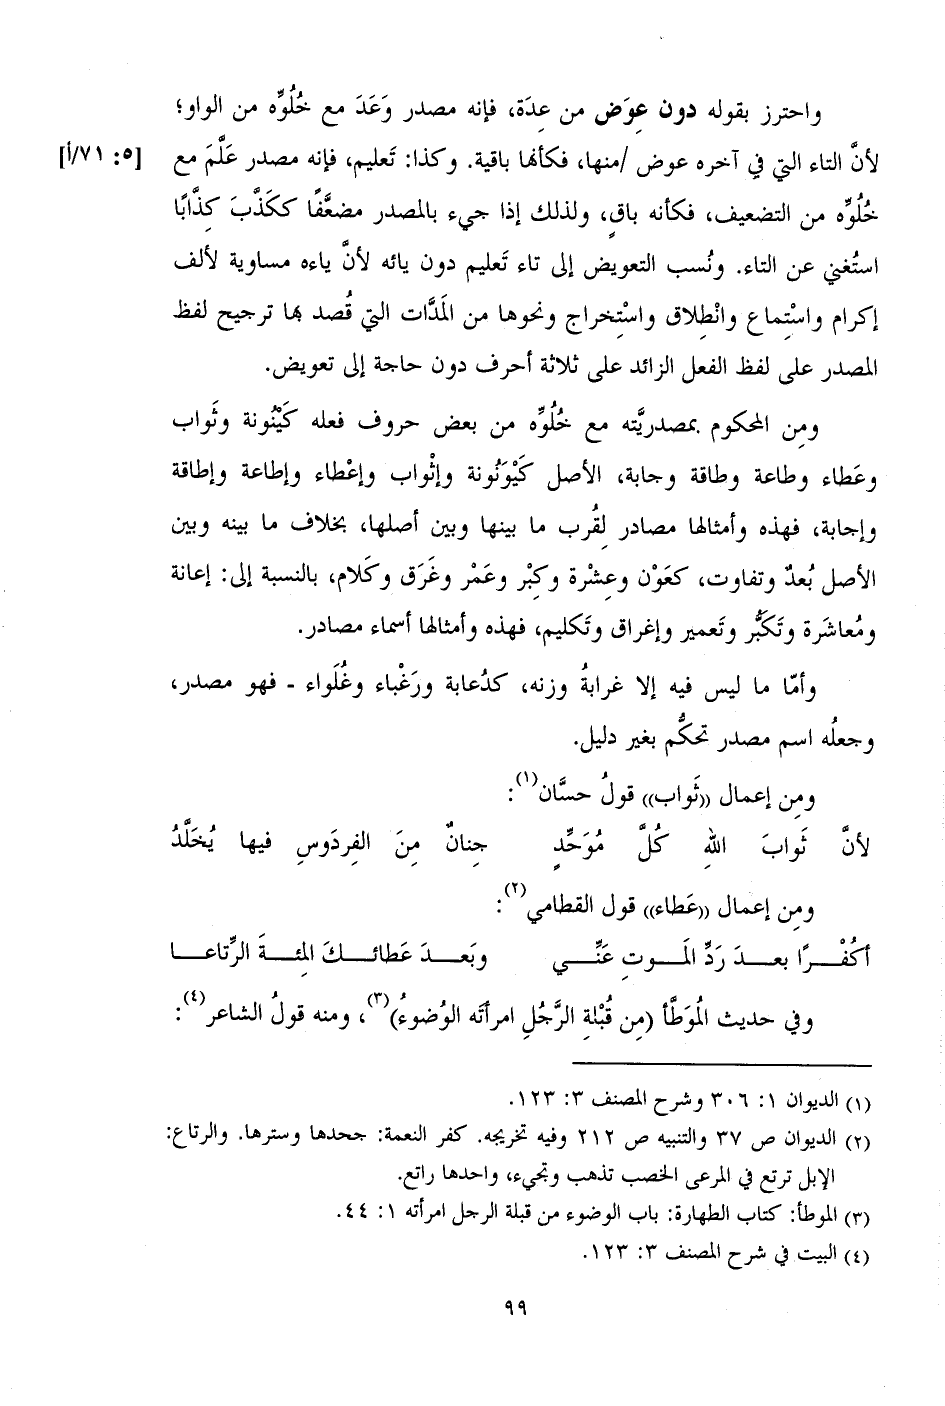 واحترز بقوله دون عِوَض من عِدَة، فإنه مصدر وَعَدَ مع خُلُوِّه من الواو؛
لأنَّ التاء التي في آخره عوض /منها، فكأنها باقية. وكذا: تَعليم، فإنه مصدر عَلَّمَ مع [٥: ٧١/أ]
خُلُوِّه من التضعيف، فكأنه باقٍ، ولذلك إذا جيء بالمصدر مضعَّفًا ككَذَّبَ كِذَّابًا
استُغني عن التاء. ونُسب التعويض إلى تاء تَعليم دون يائه لأنَّ ياءه مساوية لألف
إكرام واسْتِماع وانْطِلاق واسْتِخراج ونحوها من المَدَّات التي قُصد بها ترجيح لفظ
المصدر على لفظ الفعل الزائد على ثلاثة أحرف دون حاجة إلى تعويض.
ومِن المحكوم بمصدريَّته مع خُلُوِّه من بعض حروف فعله كَيْنُونة وثَواب
وعَطاء وطاعة وطاقة وجابة، الأصل كَيْوَنُونة وإثْواب وإعْطاء وإطاعة وإطاقة
وإجابة، فهذه وأمثالها مصادر لِقُرب ما بينها وبين أصلها، بخلاف ما بينه وبين
الأصل بُعدٌ وتفاوت، كعَوْن وعِشْرة وكِبْر وعَمْر وغَرَق وكَلام، بالنسبة إلى: إعانة
ومُعاشَرة وتَكَبُّر وتَعمير وإغراق وتَكليم، فهذه وأمثالها أسماء مصادر.
وأمّا ما ليس فيه إلا غرابةُ وزنه، كدُعابة ورَغْباء وغُلَواء - فهو مصدر،
وجعلُه اسم مصدر تحكُّم بغير دليل.
ومِن إعمال ((ثَواب)) قولُ حسَّان(١):
لأنَّ ثَوابَ اللهِ كُلَّ مُوَحِّدٍ جِنانٌ مِنَ الفِردَوسِ فيها يُخَلَّدُ
ومِن إعمال ((عَطاء)) قول القطامي(٢):
أَكُفْرًا بعدَ رَدِّ المَوتِ عَنِّي وبَعدَ عَطائكَ المِئةَ الرِّتاعا
وفي حديث المُوَطَّأ (مِن قُبْلةِ الرَّجُلِ امرأتَه الوُضوءُ)(٣)، ومنه قولُ الشاعر(٤):
(١) الديوان ١: ٣٠٦ وشرح المصنف ٣: ١٢٣.
(٢) الديوان ص ٣٧ والتنبيه ص ٢١٢ وفيه تخريجه. كفر النعمة: جحدها وسترها. والرتاع:
الإبل ترتع في المرعى الخصب تذهب وتجيء، واحدها راتع.
(٣) الموطأ: كتاب الطهارة: باب الوضوء من قبلة الرجل امرأته ١: ٤٤.
(٤) البيت في شرح المصنف ٣: ١٢٣.
٩٩